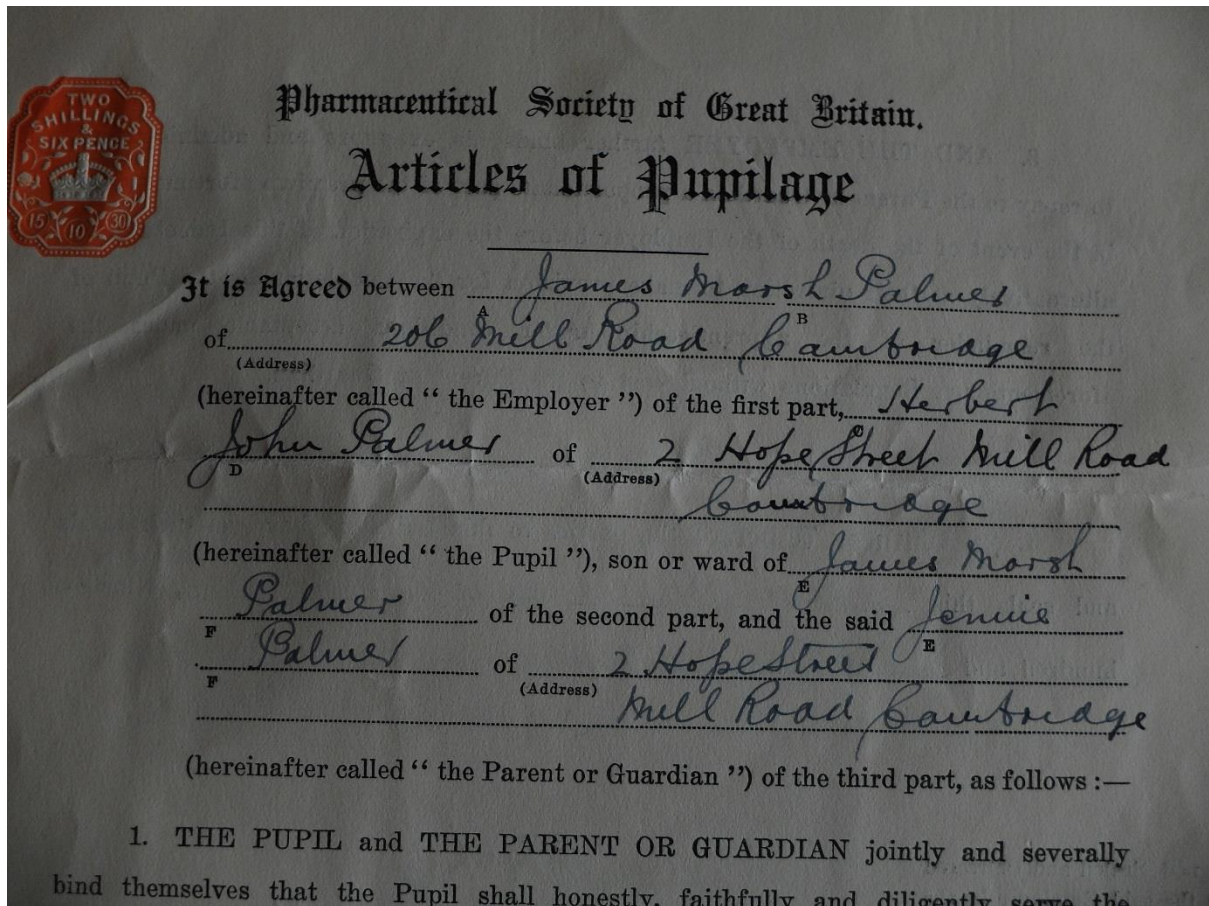 TWO
SHILLINGS
&
SIX PENCE
15 10 30
Pharmaceutical Society of Great Britain.
Articles of Pupilage
It is Agreed between James Marsh Palmer
A B
of 206 Mill Road Cambridge
(Address)
(hereinafter called “ the Employer ”) of the first part, Herbert
John Palmer of 2 Hope Street Mill Road
D (Address)
Cambridge
(hereinafter called “ the Pupil ”), son or ward of James Marsh
E
Palmer of the second part, and the said Jennie
F E
Palmer of 2 Hope Street
F (Address)
Mill Road Cambridge
(hereinafter called “ the Parent or Guardian ”) of the third part, as follows :—
1. THE PUPIL and THE PARENT OR GUARDIAN jointly and severally
bind themselves that the Pupil shall honestly, faithfully and diligently serve the